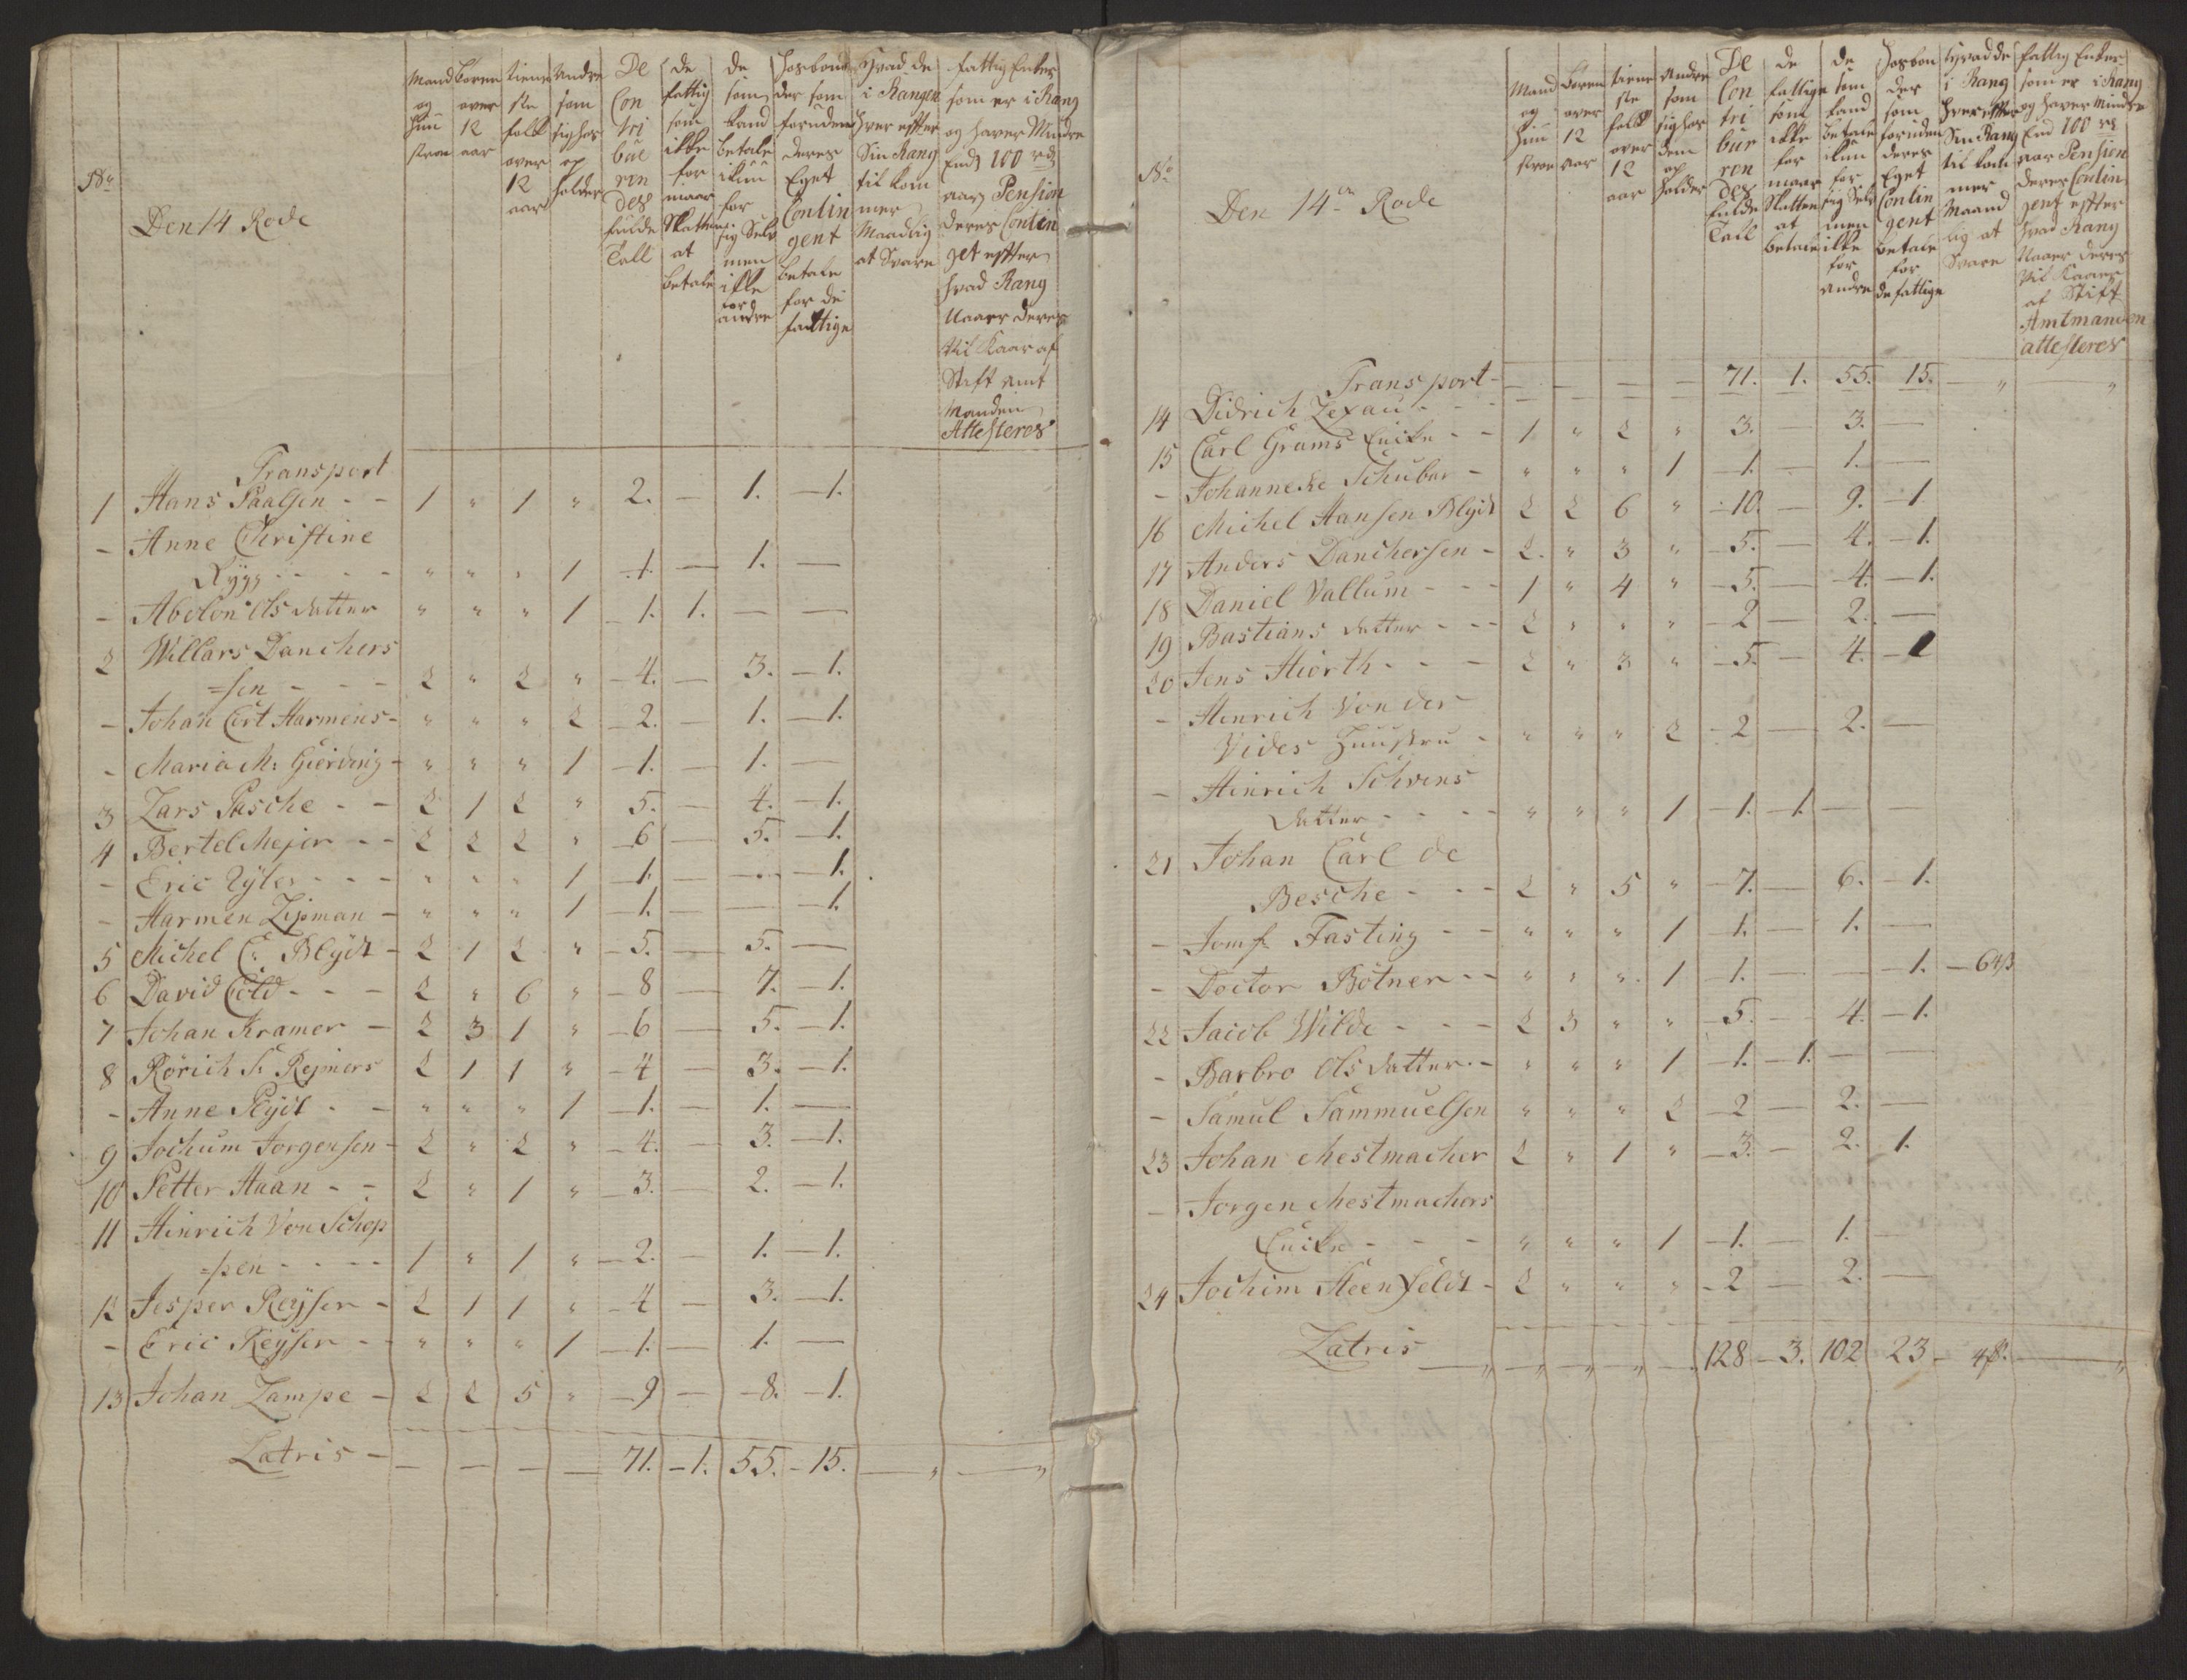 No
Den 14 Rode
Mand og Huustroe
Børen over 12 aar
tieneste folk over 12 aar
Andre som sig hos op holder
De Contribuerendes fulde Tall
De fattig som ikke formaar Skatten at betale
de som kand betale ikun for sig Selv men ikke for andre
Hosbonder som foruden deres Eget Contingent betale for de fattige
Hvad de i Rangen hver effter Sin Rang til kommer Maadlig at Svare
fattig Enker som er i Rang og haver Mindre End 100 rd aarg Pension deres Continget effter hvad Rang Naar deres Vil kaar af Stift amt Manden Attesteres
Transport
1 Hans Paalsen - - 1 " 1 " 2. — 1. — 1.
- Anne Christine
Rygg - - - " " " 1 1. — 1. —
- Abelon Ols datter " " " 1 1. 1. — —
2 Willars Danchers
=sen - - - 2 " 2 " 4. — 3. — 1.
- Johan Cort Harmens - " " " 2 2. — 1. — 1.
- Maria M: Gierding - " " " 1 1. — 1. —
3 Lars Pasche - - 2 1 2 " 5. — 4. — 1.
4 Bertel Mejer - - 2 2 2 " 6 — 5. — 1.
- Eric - - - " " " 1 1. — — 1.
- Harmen Lipman - " " " 1 1. — — 1.
5 Michel C: Blydt - 2 1 2 " 5. — 5. —
6 David Cold - - - 2 " 6 " 8 — 7. — 1.
7 Johan Kramer - 2 3 1 " 6 — 5. — 1.
8 Rørich S: Rejmers 2 1 1 " 4 — 3. — 1.
- Anne Blydt - - " " " 1 1. — 1. —
9 Jochum Jorgensen - 2 " 2 " 4. — 3. — 1.
10 Petter Haan - - 2 " 1 " 3. — 2. — 1.
11 Hinrich Von Schep
=pen - - - - 1 " 1 " 2. — 1. — 1.
12 Jesper Reyser - 2 1 1 " 4 — 3. — 1.
- Eric Reyser - - " " " 1 1. — 1. —
13 Johan Lampe - 2 2 5 " 9 — 8. — 1.
Latris - — — — — 71. — 1. 55. — 15. — " — "
No
Den 14de Rode
Mand og Huustroe
Børen over 12 aar
tieneste folk over 12 aar
Andre som sig hos dem op holder
De Contriburendes fulde Tall
de fattige som ikke formaar Skatten at betale
de som kand betale ikun for sig Selv men ikke for andre
Hosbonder som foruden deres Eget Contingent betale for de fattige
Hvad de i Rang hver effter Sin Rang til kommer Maandlig at Svare
fattig Enker som er i Rang og haver Mindre End 100 rd aar Pension deres Contingent effter hvad Rang Naaer deres Vil kaaer af Stift Amtmanden attesteres
Transport - — — — — 71. 1. 55. 15. — " — "
14 Didrich Lexau - - -
15 Carl Grams Encke - - 1 " 2 " 3. — 3. —
- Johanneke Schuber - " " " 1 1. — 1. —
16 Michel Hansen Blydt 2 2 6 " 10. — 9. — 1
17 Anders Danchersen - 2. " 3 " 5. — 4. — 1.
18 Daniel Vallum - - - 1 " 4 " 5. — 4. — 1.
19 Bastians datter - - - 2 " " " 2 — 2. —
20 Jens Hiorth - - - 2 " 3 " 5. — 4. — 1
- Henrich Von der
Vides Huustru - " " " 2 2 — 2. —
- Hinrich Schvens
datter - - - - " " " 1 1. — 1. — —
21 Johan Carl de
Besche - - - 2 " 5 " 7. — 6. — 1.
- Jomf. Fasting - - " " " 1 1. — 1. —
- Doctor Bøtner - - " " " 1 1. — — 1. — 64ß
22 Jacob Wilde - - - 2 3 " " 5. — 4. — 1.
- Barbro Ols datter - " " " 1 1. — 1. — —
- Samul Sammuelsen " " " 2 2 — 2. —
23 Johan Mestmacher 2 " 1 " 3. — 2. 1.
- Jorgen Mestmachers
Encke - - - " " " 1 1. — 1. —
24 Jochim Steenfeldt - 2 " " " 2 — 2. —
Latris — " — " — " — " — 128 — 3. 102 23 — — "